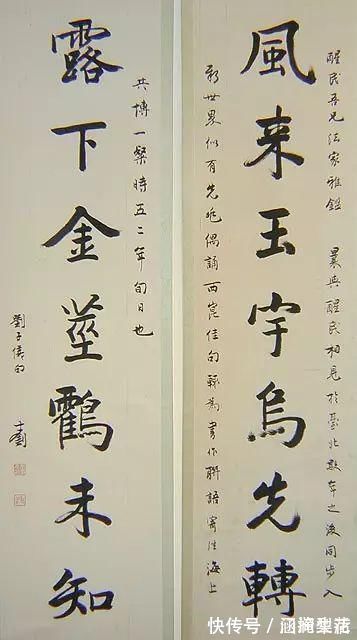 醒民吾兄法家雅鑑 曩與醒民相見於臺北數年之後同步入
風来玉宇烏先轉
新世界似有先兆偶誦西崑佳句輒為書作聯語寄往海上
共博一粲時五二年旬日也
露下金莖鸖未知
快传号/